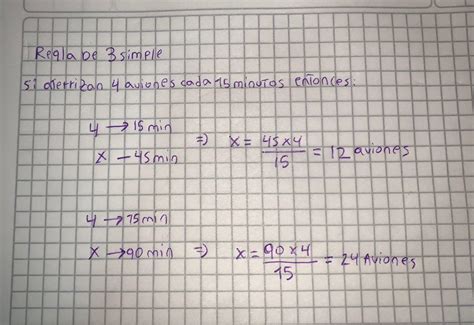 Regla De 3 simple
Si aterrizan 4 aviones cada 15 minutos entonces:
4 → 15 min
x — 45 min ⇒ x = 45 x 4 / 15 = 12 aviones
4 → 15 min
x → 90 min ⇒ x = 90 x 4 / 15 = 24 Aviones